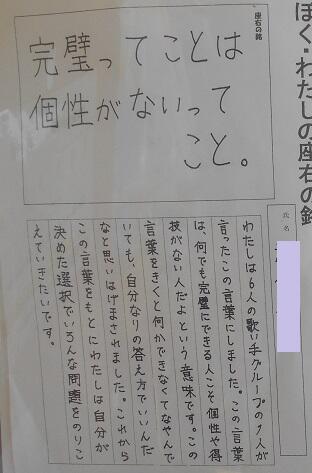 ぼく・わたしの座右の銘
氏名
座右の銘
完璧ってことは
個性がないって
こと。
わたしは6人の歌い手グループの1人が
言ったこの言葉にしました。この言葉
は、何でも完璧にできる人こそ個性や得
技がない人だよという意味です。この
言葉をきくと何かできなくてなやんで
いても、自分なりの答え方でいいんだ
なと思いはげまされました。これから
この言葉をもとにわたしは自分が
決めた選択でいろんな問題をのりこ
えていきたいです。